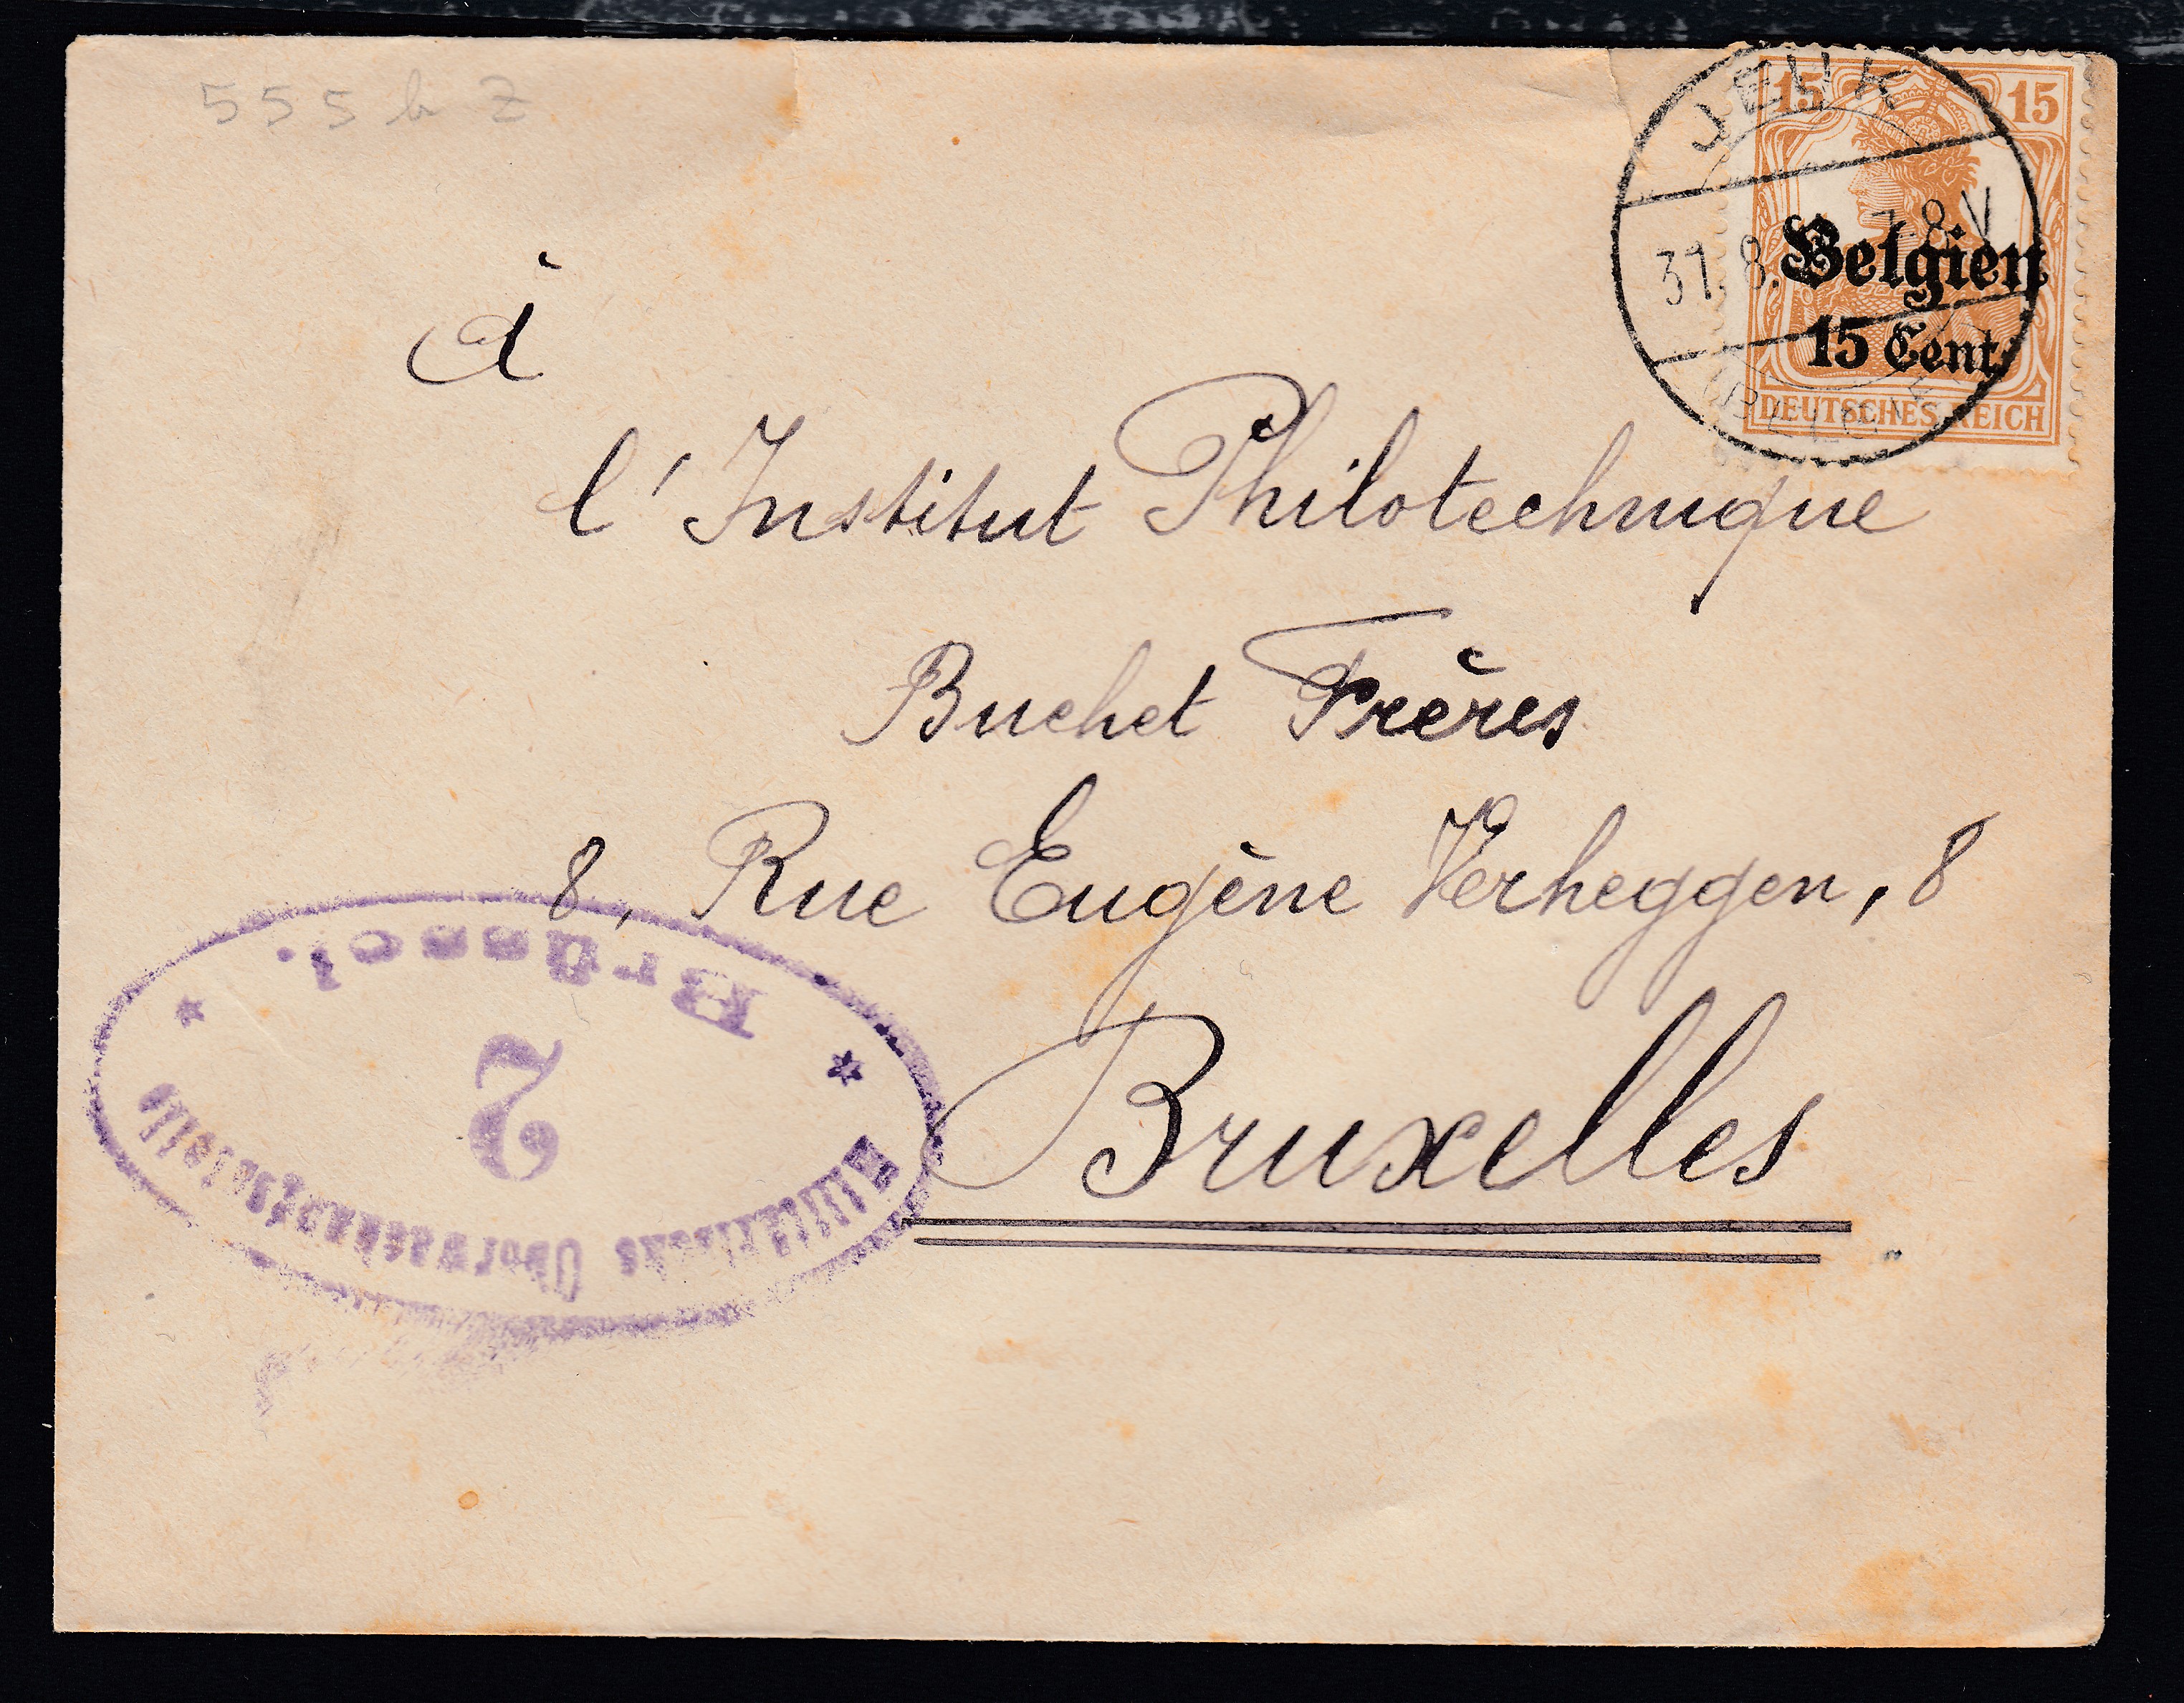 555 b Z
JEUK
15 15
31. 8. 7-8.V
Belgien
15 Cent.
(BELGIEN)
DEUTSCHES REICH
à
l'Institut Philotechnique
Buchet Frères
8, Rue Eugène Verheggen, 8
Bruxelles
Militärische Überwachungsstelle
2
Brüssel.